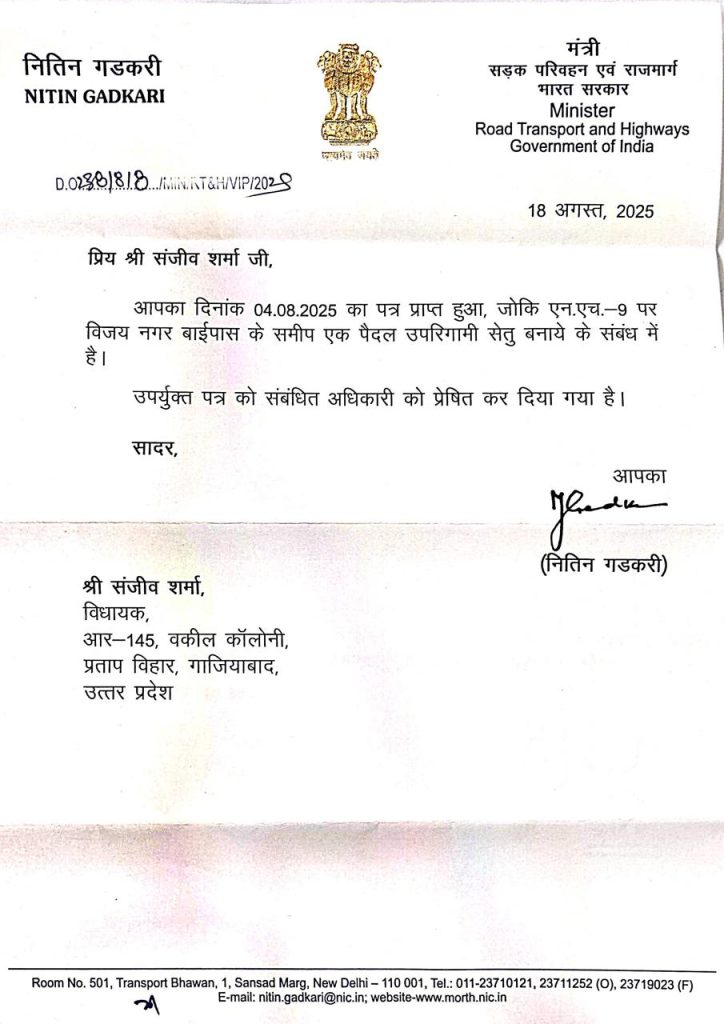 नितिन गडकरी
NITIN GADKARI
सत्यमेव जयते
मंत्री
सड़क परिवहन एवं राजमार्ग
भारत सरकार
Minister
Road Transport and Highways
Government of India
/MIN.RT&H/VIP/2025
18 अगस्त, 2025
प्रिय श्री संजीव शर्मा जी,
आपका दिनांक 04.08.2025 का पत्र प्राप्त हुआ, जोकि एन.एच.–9 पर
विजय नगर बाईपास के समीप एक पैदल उपरिगामी सेतु बनाये के संबंध में
है।
उपर्युक्त पत्र को संबंधित अधिकारी को प्रेषित कर दिया गया है।
सादर,
आपका
(नितिन गडकरी)
श्री संजीव शर्मा,
विधायक,
आर–145, वकील कॉलोनी,
प्रताप विहार, गाजियाबाद,
उत्तर प्रदेश
Room No. 501, Transport Bhawan, 1, Sansad Marg, New Delhi – 110 001, Tel.: 011-23710121, 23711252 (O), 23719023 (F)
E-mail: nitin.gadkari@nic.in; website-www.morth.nic.in